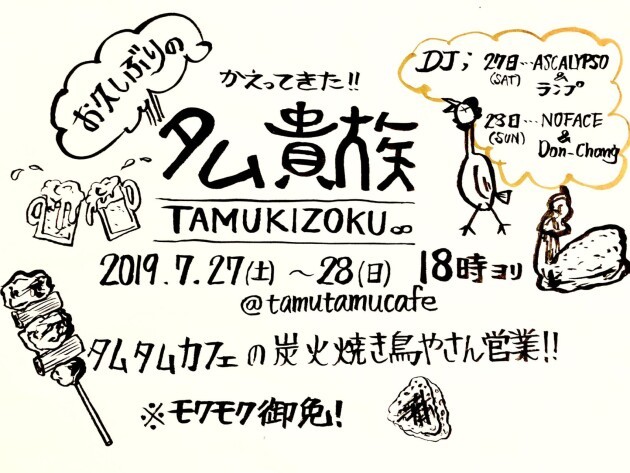 お久しぶりの
かえってきた!!
タム貴族
TAMUKIZOKU∞
DJ; 27日…ASCALYPSO
(SAT) &
ランプ
28日…NOFACE
(SUN) &
Don-Chang
2019.7.27(土) 〜28(日) 18時ヨリ
@tamutamucafe
タムタムカフェの炭火焼き鳥やさん営業!!
※モクモク御免!